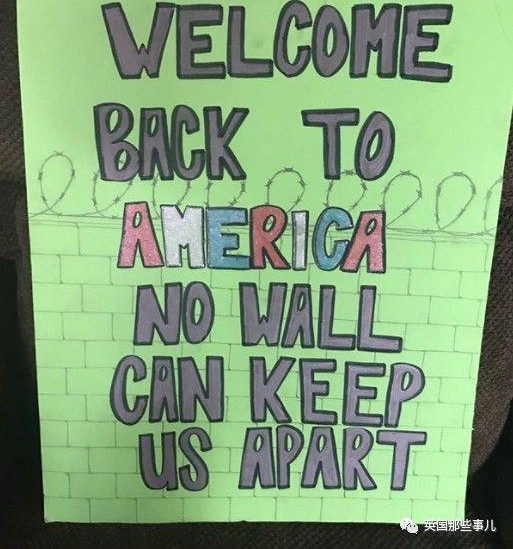 WELCOME
BACK TO
AMERICA
NO WALL
CAN KEEP
US APART
英国那些事儿